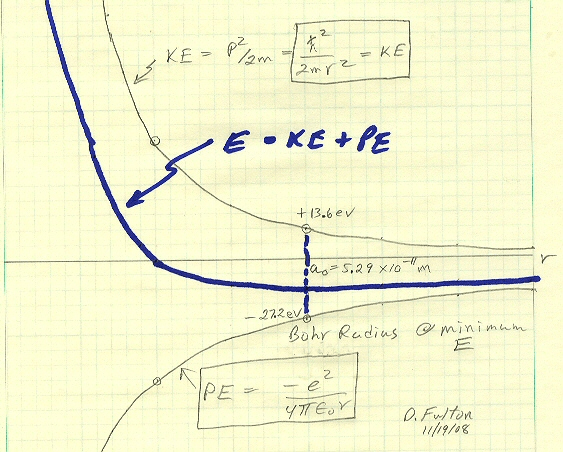 KE = P²/2m = ℏ²/2mr² = KE
E = KE + PE
+13.6ev
r
a₀ = 5.29 × 10⁻¹¹ m
-27.2ev
Bohr Radius @ minimum
E
PE = -e²/4πϵ₀r
D. Fulton
11/19/08